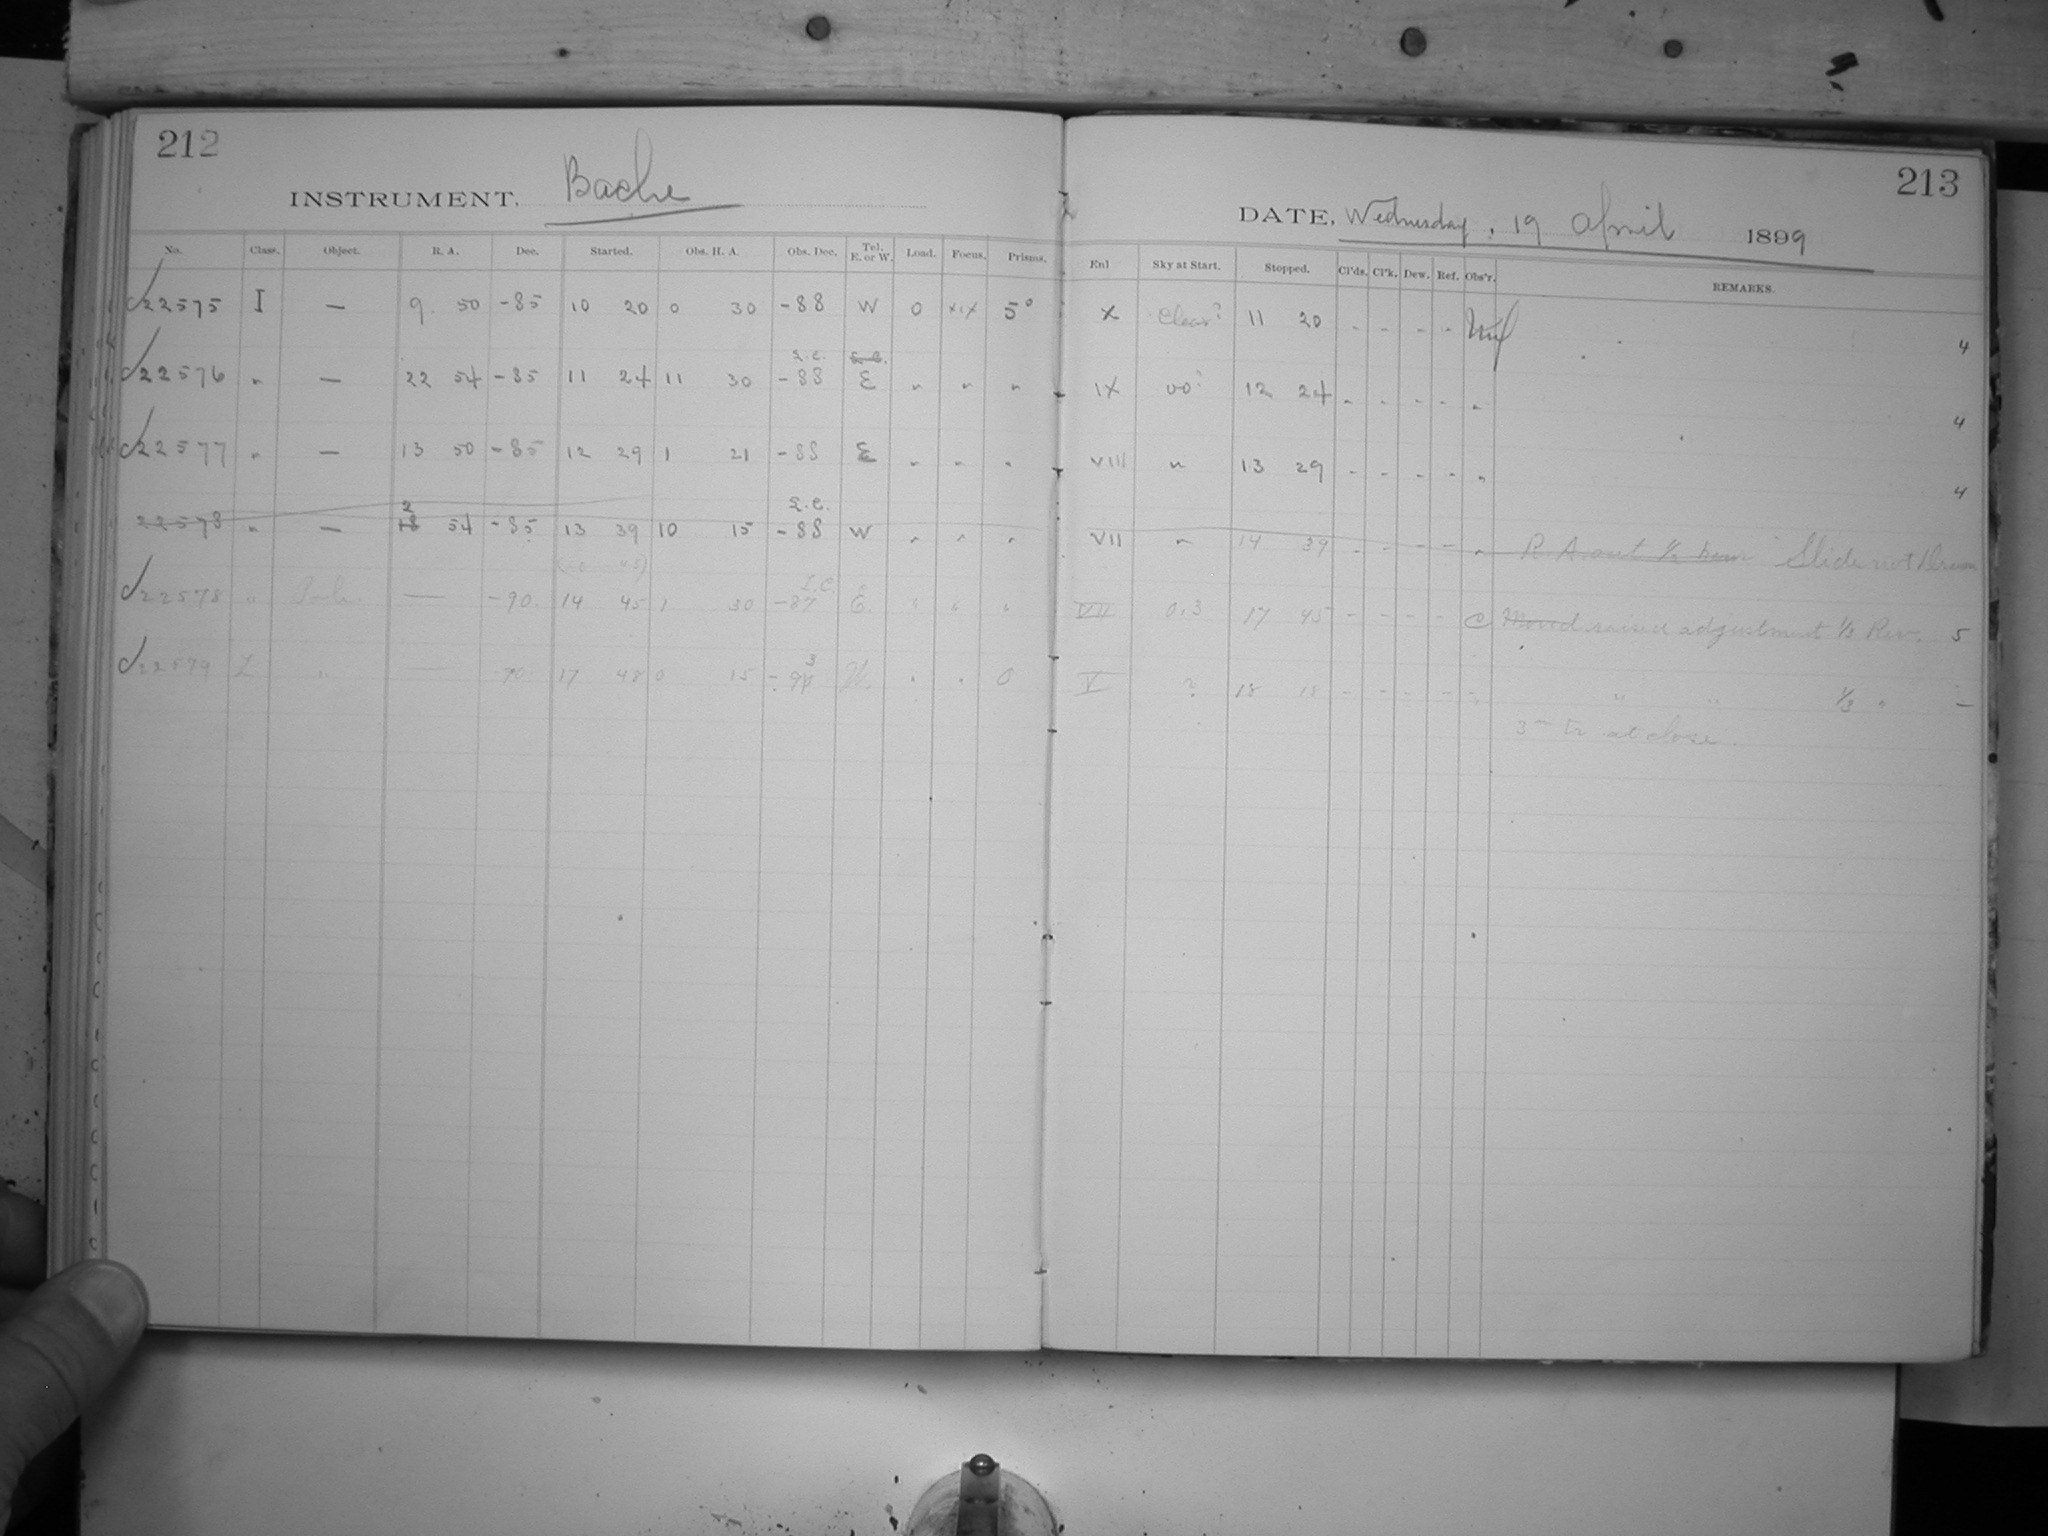 212
INSTRUMENT. Bache
No. Class. Object. R. A. Dec. Started. Obs. H. A. Obs. Dec. Tel. E. or W. Load. Focus. Prisms.
22575 I — 9 50 -85 10 20 0 30 -88 W 0 XIX 5°
S.C. S.C.
22576 " — 22 54 -85 11 24 11 30 -88 E " " "
22577 " — 13 50 -85 12 29 1 21 -88 E " " "
2 S.C.
22578 " — 18 54 -85 13 39 10 15 -88 W " " "
(0 45) S.C.
22578 " Pole. — -90. 14 45 1 30 -87 E. " " "
22579 L " — 90. 17 48 0 15 W. " " 0
213
DATE, Wednesday, 19 April 1899
Enl Sky at Start. Stopped. Cl'ds. Cl'k. Dew. Ref. Obs'r. REMARKS.
X Clear? 11 20 - - - - 4
IX 00? 12 24 - - - - " 4
VIII " 13 29 - - - - " 4
VII " 14 39 - - - - " R. A. out ½ hour Slide not Drawn
VII 0.3 17 45 - - - - C Moved raised adjustment ⅓ Rev. 5
V ? 18 18 - - - - " " " ⅓ " —
3m tr at close.